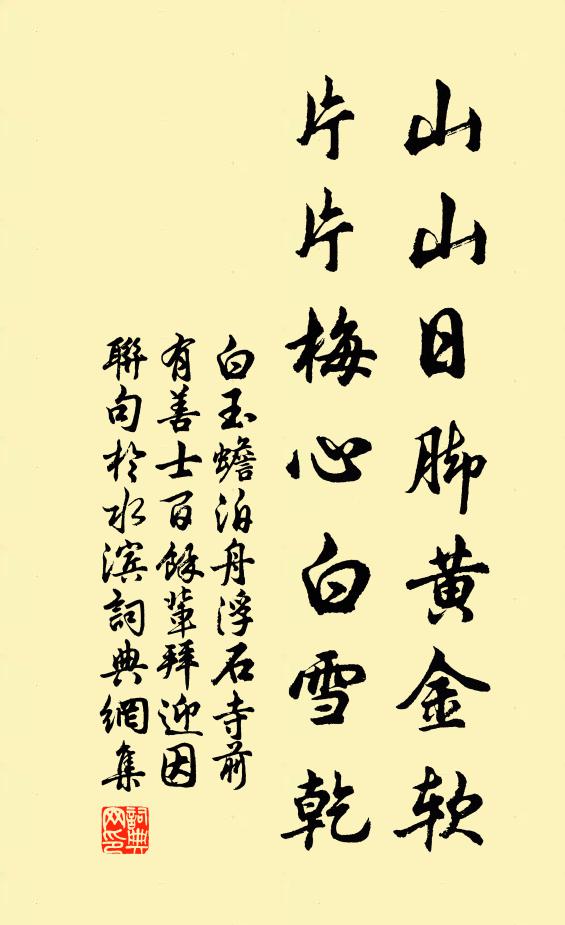 山山日脚黄金软
片片梅心白雪乾
白玉蟾泊舟浮石寺前
有善士百餘輩拜迎因
聯句於水滨詞典網集
詞典网印